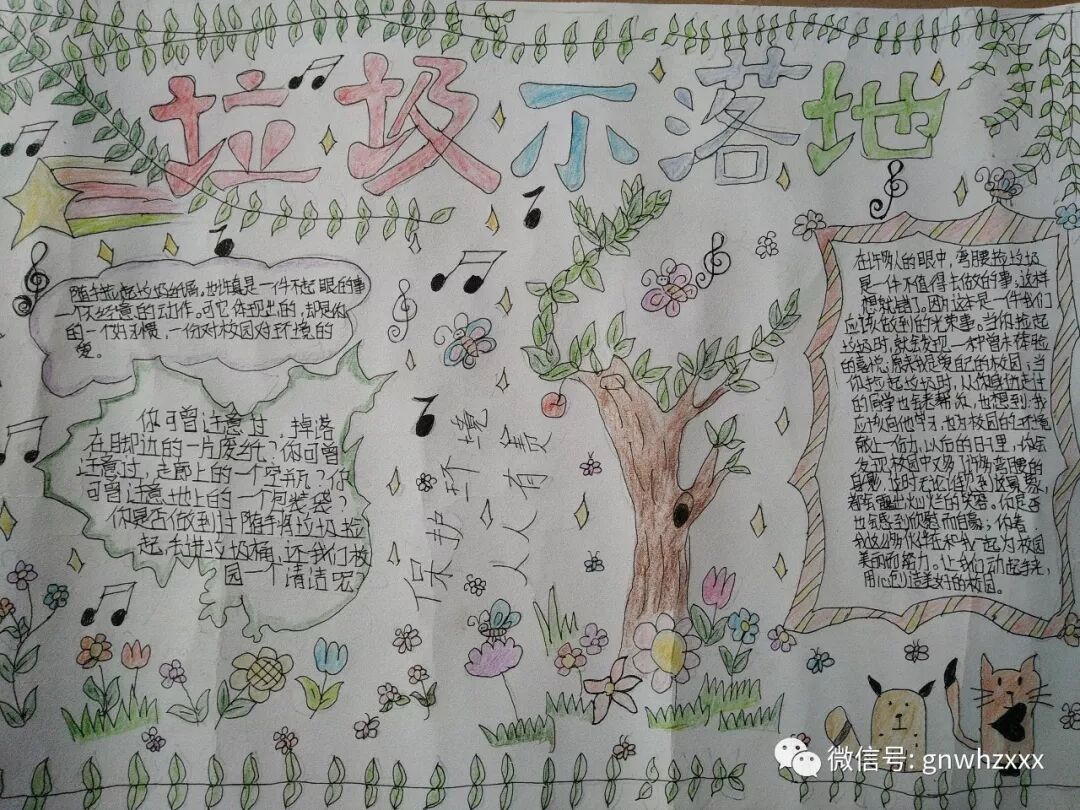 垃圾不落地
随手捡起垃圾纸屑,也许真是一件不起眼的事
一个不经意的动作,可它体现出的,却是你
的一个好习惯,一份对校园对环境的
爱。
你可曾注意过,掉落
在脚边的一片废纸?你可曾
注意过,走廊上的一个空瓶?你
可曾注意地上的一个包装袋?
你是否做到过随手将垃圾捡
起,丢进垃圾桶,还我们校
园一个清洁呢?
保护环境
人人有责
在许多人的眼中,弯腰捡垃圾
是一件不值得去做的事;这样
想就错了。因为这本是一件我们
应该做到的光荣事。当你捡起
垃圾时,就会发现一种曾未体验
的喜悦,原来我是爱自己的校园;当
你捡起垃圾时,从你身边走过
的同学也会来帮你,也想到:我
应该向他学习,也为校园的环境
献上一份力,以后的日子里,你会
发现校园中又多了许多弯腰的
身影,这时无论谁见到这景象,
都会露出灿烂的笑容。你是否
也会感到欣慰而自豪;你看
我这么多伙伴在和我一起为校园
美丽而努力。让我们动起手来,
用心创造美好的校园。
微信号: gnwhzxxx